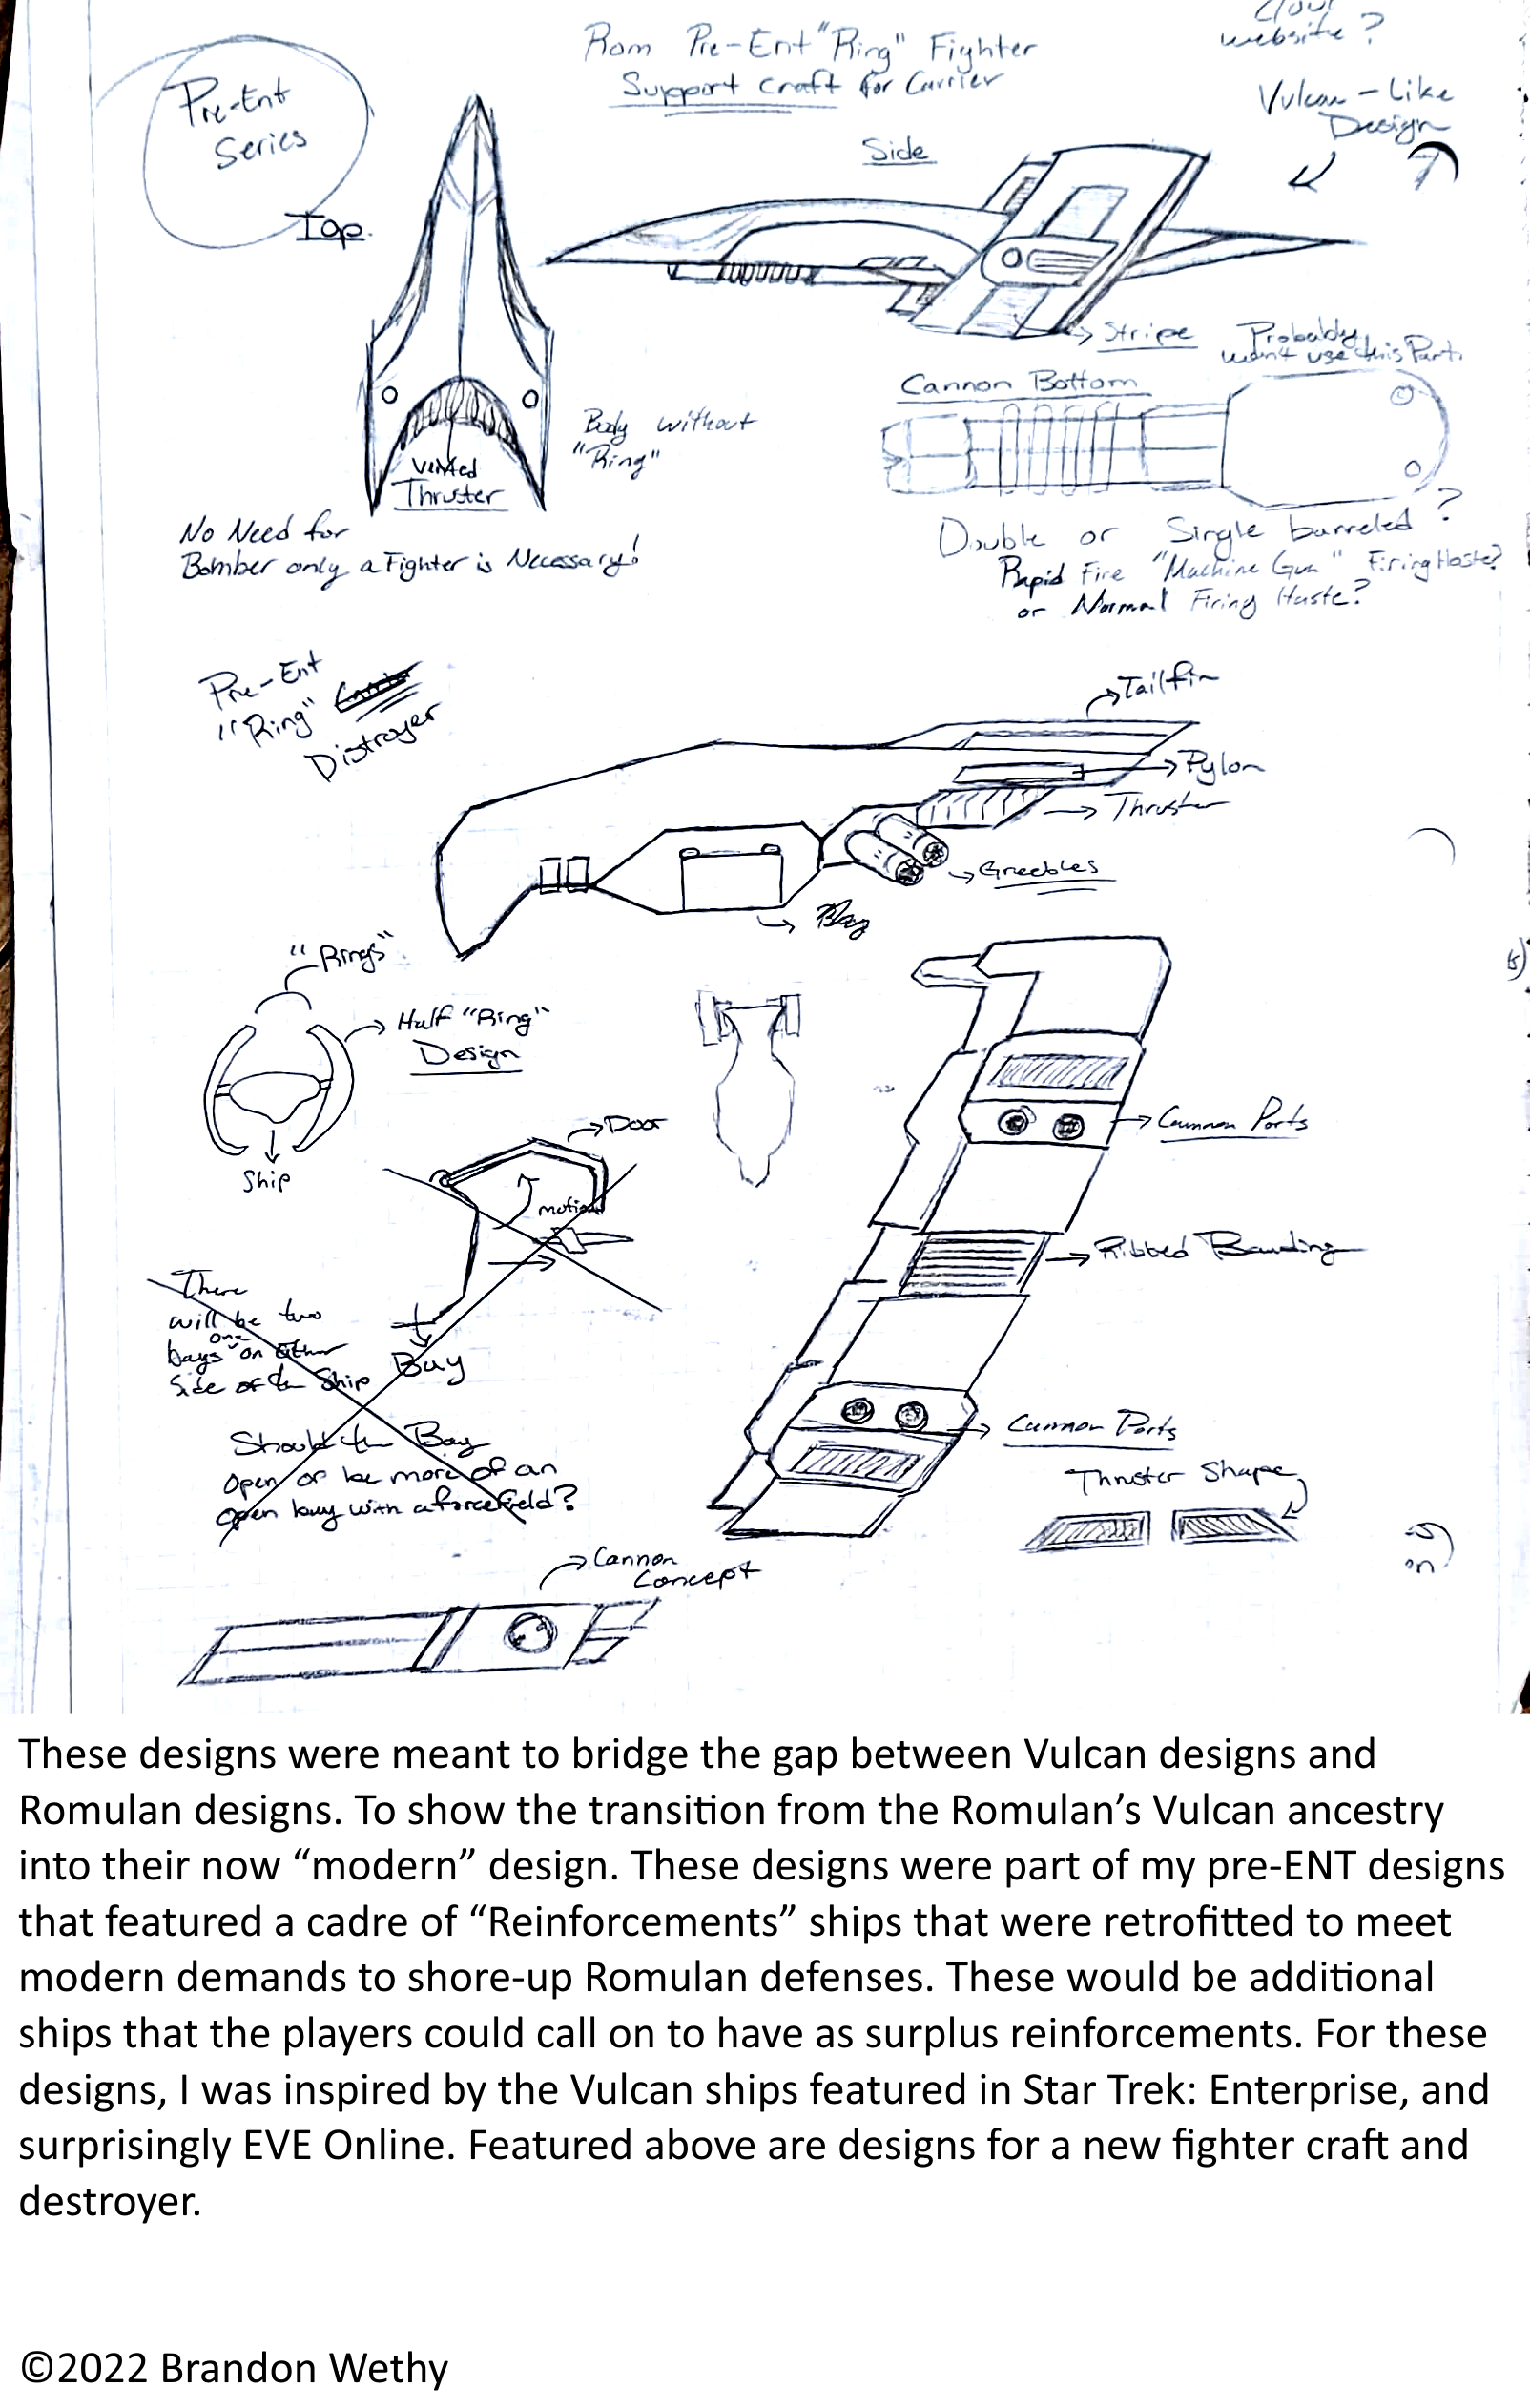 Rom Pre-Ent "Ring" Fighter
Support Craft for Carrier
website?
Pre-Ent
Series
Vulcan-Like
Design
Top.
Side
Stripe
Probably
won't use this Part.
Cannon Bottom
Body without
"Ring"
Vented
Thruster
No Need for
Bomber only a Fighter is Necessary!
Double or Single barreled?
Rapid Fire "Machine Gun" Firing Haste?
or Normal Firing Haste?
Pre-Ent
"Ring" Carrier
Distroyer
Tailfin
Pylon
Thruster
Greebles
Bay
"Rings"
Half "Ring"
Design
Ship
Door
motion
Cannon Ports
Ribbed Banding
There
will be two
bays one on either
Side of the Ship
Bay
Should the Bay
Open or be more of an
open bay with a forcefield?
Cannon Ports
Thruster Shape
Cannon
Concept
These designs were meant to bridge the gap between Vulcan designs and
Romulan designs. To show the transition from the Romulan’s Vulcan ancestry
into their now “modern” design. These designs were part of my pre-ENT designs
that featured a cadre of “Reinforcements” ships that were retrofitted to meet
modern demands to shore-up Romulan defenses. These would be additional
ships that the players could call on to have as surplus reinforcements. For these
designs, I was inspired by the Vulcan ships featured in Star Trek: Enterprise, and
surprisingly EVE Online. Featured above are designs for a new fighter craft and
destroyer.
©2022 Brandon Wethy